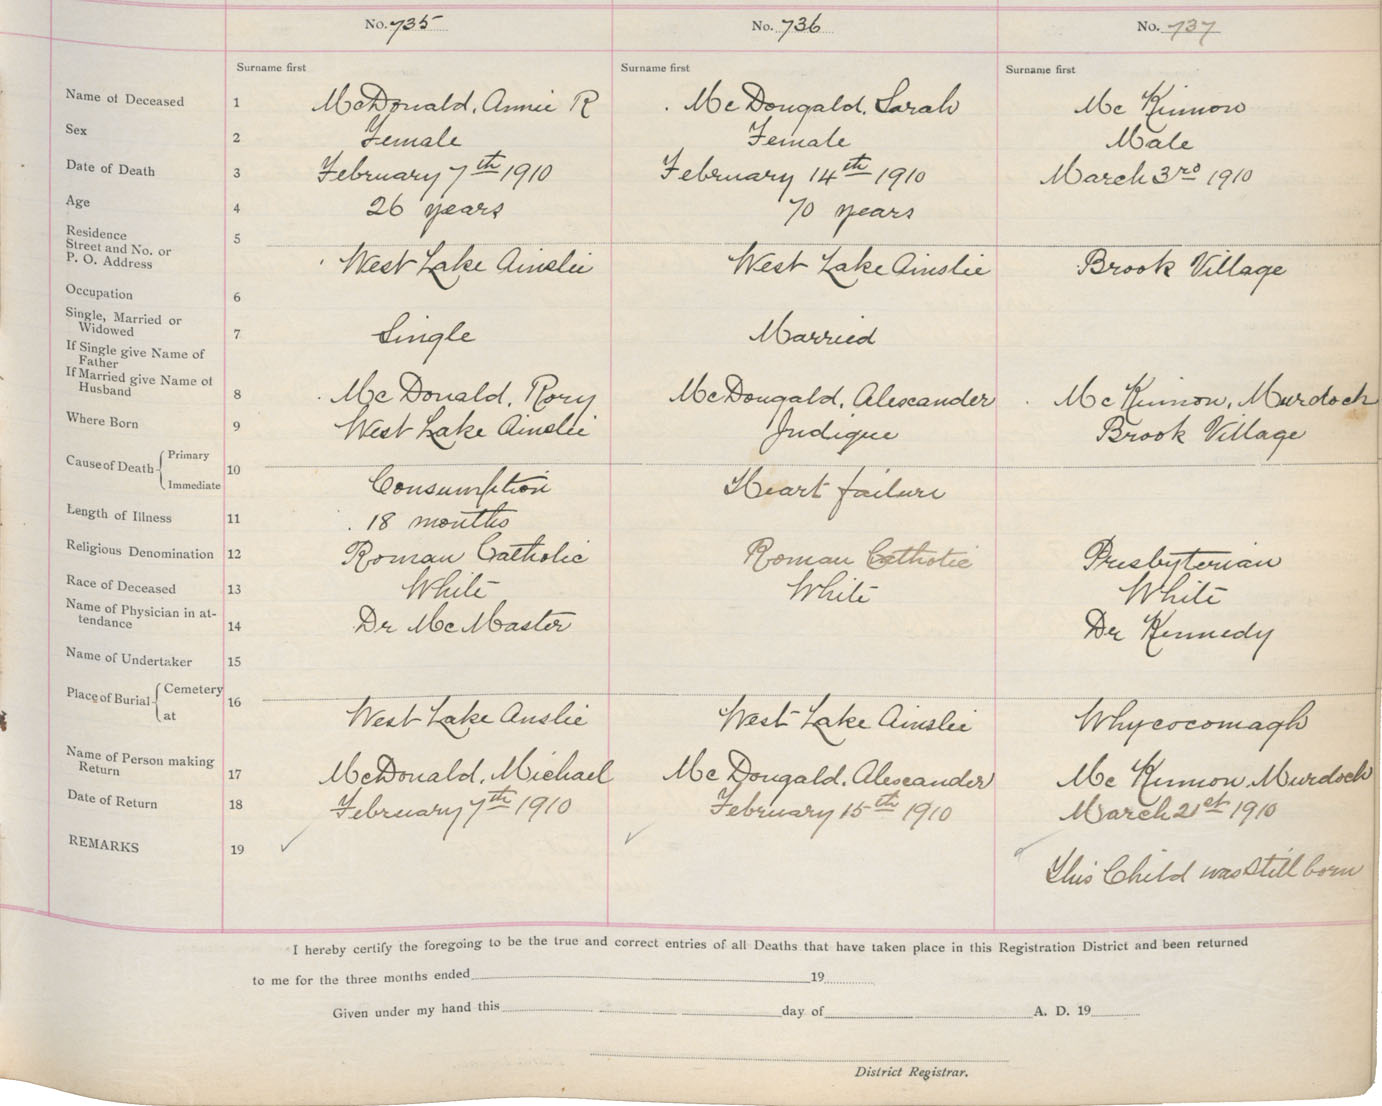 No. 735 No. 736 No. 737
Surname first Surname first Surname first
Name of Deceased 1 McDonald, Annie R McDougald, Sarah McKinnon
Sex 2 Female Female Male
Date of Death 3 February 7th 1910 February 14th 1910 March 3rd 1910
Age 4 26 years 70 years
Residence 5
Street and No. or
P. O. Address West Lake Ainslie West Lake Ainslie Brook Village
Occupation 6
Single, Married or
Widowed 7 Single Married
If Single give Name of
Father
If Married give Name of
Husband 8 McDonald, Rory McDougald, Alexander McKinnon, Murdoch
Where Born 9 West Lake Ainslie Judique Brook Village
Cause of Death { Primary 10
Immediate Consumption Heart failure
Length of Illness 11 18 months
Religious Denomination 12 Roman Catholic Roman Catholic Presbyterian
Race of Deceased 13 White White White
Name of Physician in at-
tendance 14 Dr McMaster Dr Kennedy
Name of Undertaker 15
Place of Burial { Cemetery 16
at West Lake Anslie West Lake Ainslie Whycocomagh
Name of Person making
Return 17 McDonald, Michael McDougald, Alexander McKinnon, Murdoch
Date of Return 18 February 7th 1910 February 15th 1910 March 21st 1910
REMARKS 19 ✓ ✓ ✓
This Child was Still born
I hereby certify the foregoing to be the true and correct entries of all Deaths that have taken place in this Registration District and been returned
to me for the three months ended 19
Given under my hand this day of A. D. 19
District Registrar.